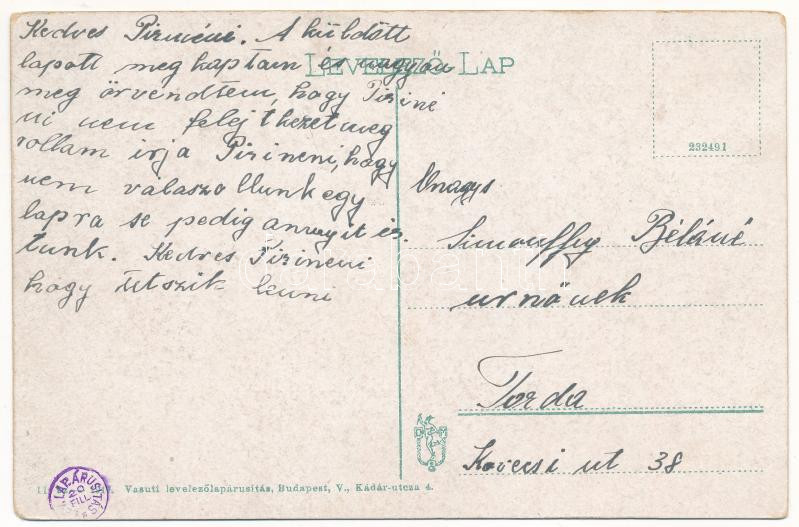 Kedves Pirinéni. A küldött
lapott meg kaptam és nagyon
meg örvendtem, hogy Piriné
ni nem felejtkezet meg
rollam irja Pirineni, hogy
nem válaszoltunk egy
lapra se pedig annyit ir
tunk. Kedves Pirineni
hogy tetszik lenni
LEVELEZŐ-LAP
232491
Önagys
Simonffy Béláné
urnőnek
Torda
Kovecsi ut 38
LAPÁRUSITÁS
20
FILL
Vasuti levelezőlapárusitás, Budapest, V., Kádár-utcza 4.